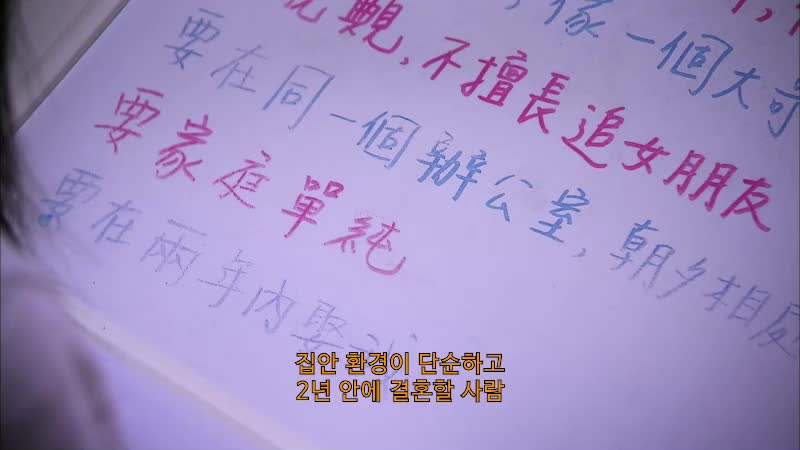 像一個大哥
不擅長追女朋友
要在同一個辦公室, 朝夕相處
要家庭單純
要在兩年內娶我
집안 환경이 단순하고
2년 안에 결혼할 사람